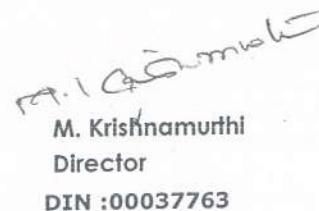 M. Krishnamurthi
Director
DIN :00037763